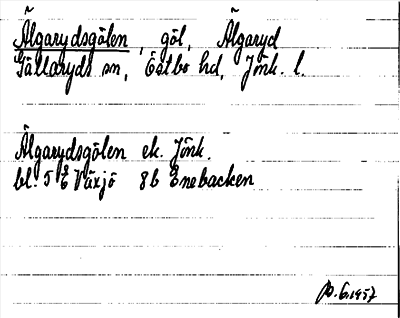 Älgarydsgölen, göl, Älgaryd
Gällaryds sn, Östbo hd, Jönk. l.
Älgarydsgölen ek. Jönk.
bl. 5 E Växjö 8b Enebacken
6.1957